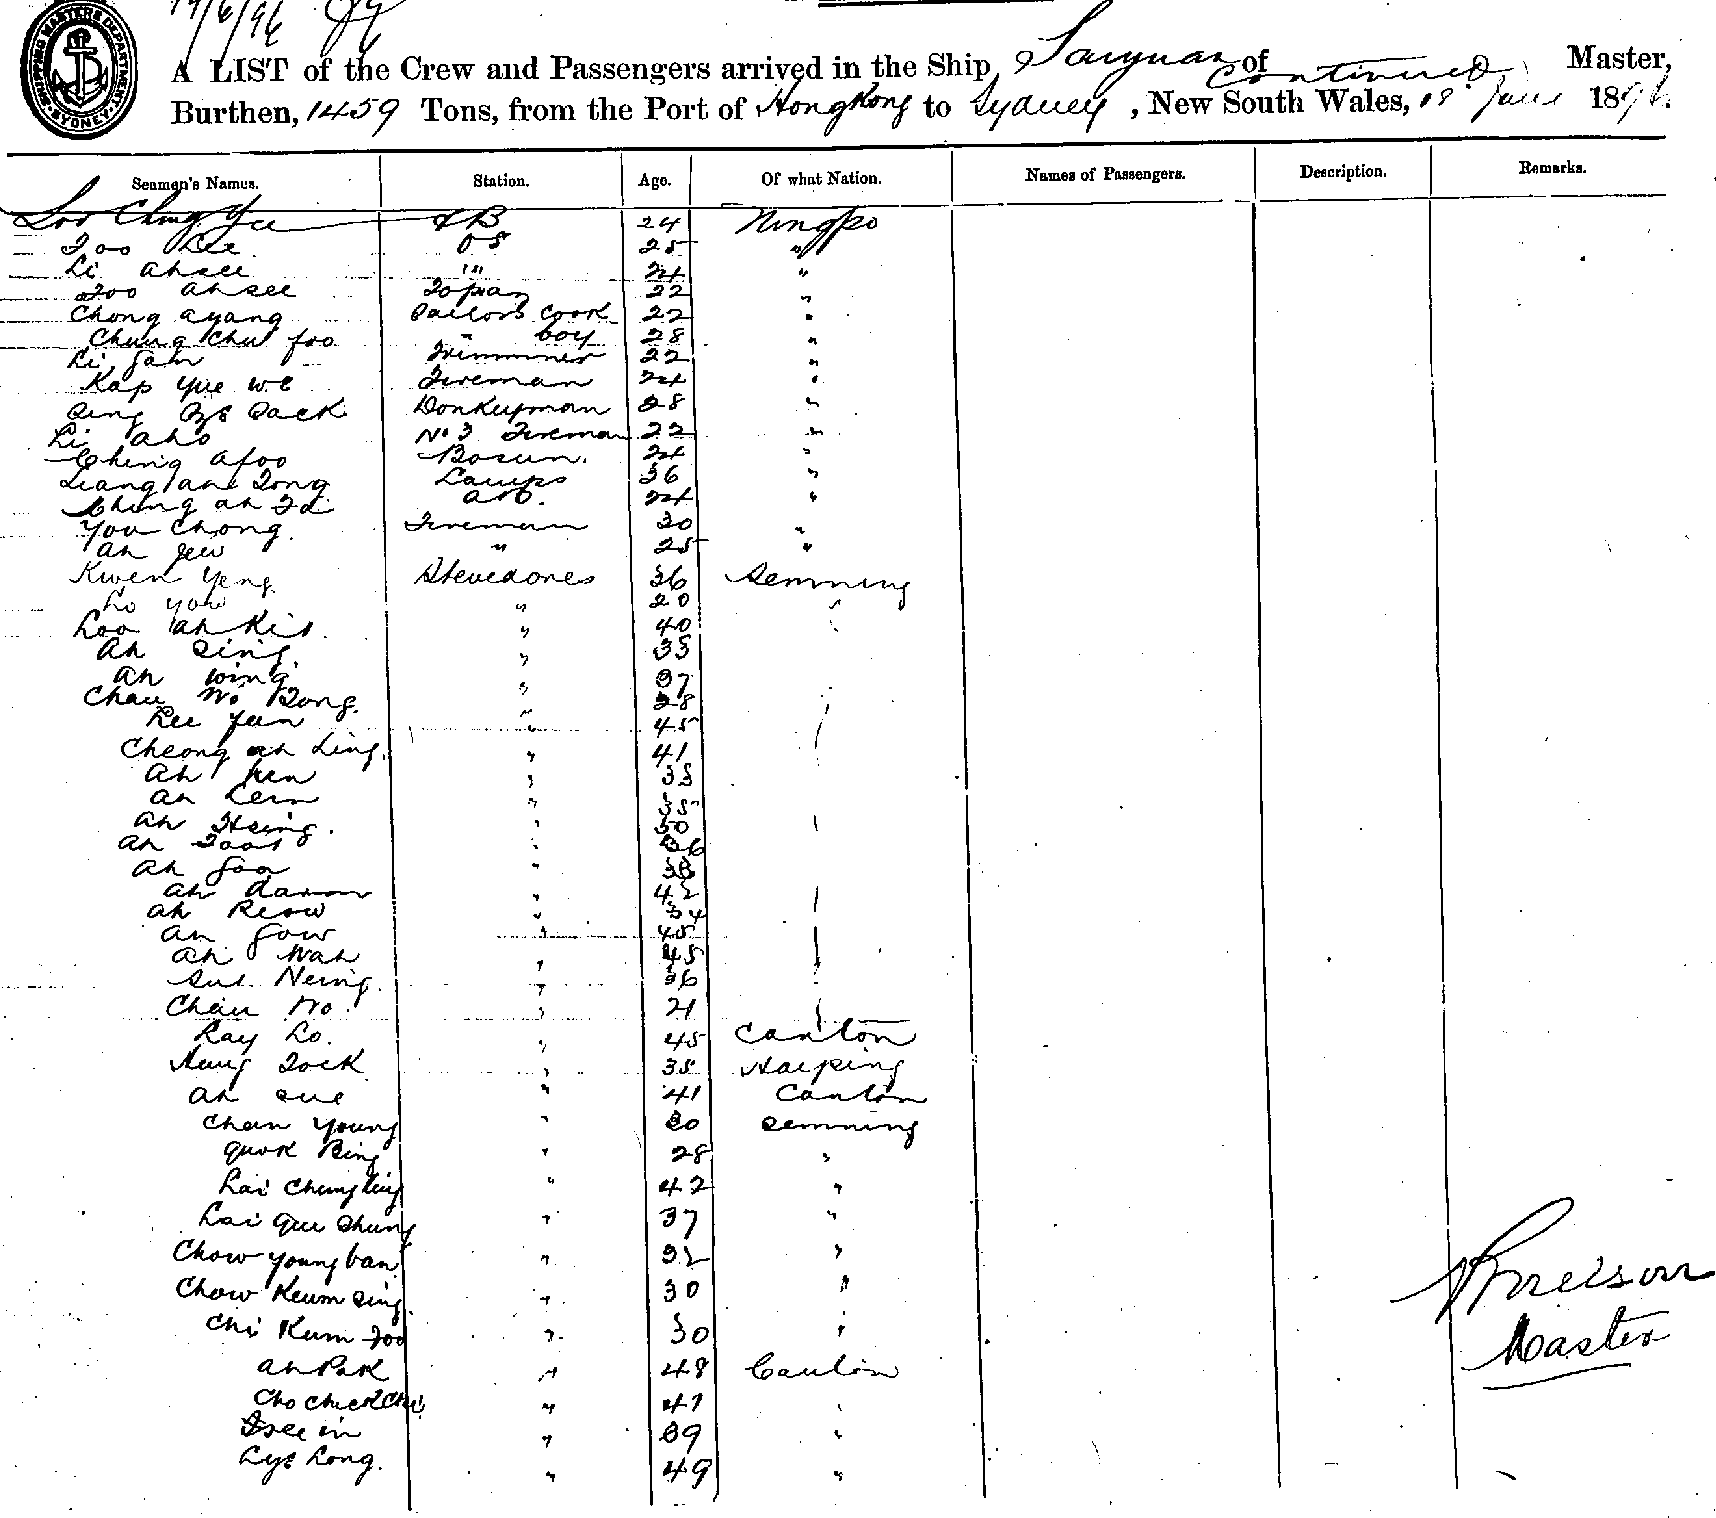 19/6/96
SHIPPING MASTERS DEPARTMENT SYDNEY
A LIST of the Crew and Passengers arrived in the Ship Taiyuan of Continued Master,
Burthen, 1459 Tons, from the Port of Hong Kong to Sydney, New South Wales, 18 June 1896
Seamen's Names. Station. Age. Of what Nation. Names of Passengers. Description. Remarks.
Loo Ching Yu AB 24 Ningpo
Too Lee OS 25 "
Li Ah see " 24 "
Too Ah see Topaz 22 "
Chong ayang Sailors Cook 22 "
Chung Chu foo " boy 28 "
Li Trimmer 22 "
Kap Yue we Fireman 24 "
Donkeyman 28 "
Li Aho No 3 Fireman 22 "
Ching Afoo Bosun. 24 "
Liang Ah Tong Lamps 36 "
Chung Ah AB. 24 "
You Chong. Fireman 30 "
Ah Jew " 25 "
Kwen Yeng Stevedores 36 Semning
Lo Yow " 20 "
Loo Ah Kit " 40 "
Ah Sing " 35
Ah Wing " 37
Chau Wo Tong. " 28
Lee Yun " 45
Cheong Ah Ling. " 41
Ah Ken " 33
Ah Lem " 35
Ah Hsing. " 30
Ah " 36
Ah Goo " 38
Ah " 42
Ah Reow " 34
Ah Gow " 45
Ah Wah " 45
Neing. " 36
Chau Wo. " 21
Kay Lo. " 45 Canton
Hung Tock " 38 Haiping
Ah Sue " 41 Canton
Chan Young " 30 Semning
Quok Bing " 28 "
Lai Chung Ling " 42 "
Lai Que Shung " 37 "
Chow Young ban " 32 "
Chow Keum Sing. " 30 "
Chi Kum Foo " 30 "
Ah Pak " 48 Canton
Cho Chick Chu " 47 "
Tsee in " 39 "
Lye Long. " 49 "
Nelson
Master